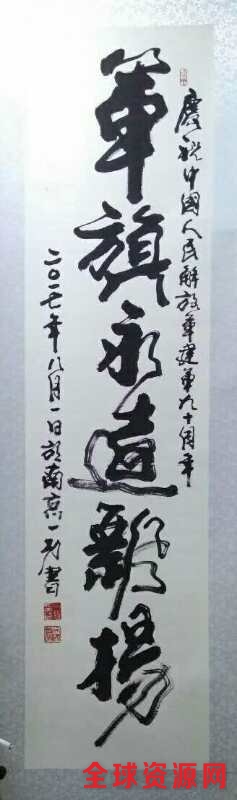 慶祝中國人民解放軍建軍九十周年
軍旗永遠飄揚
二〇一七年八月一日於南京一書
全球资源网